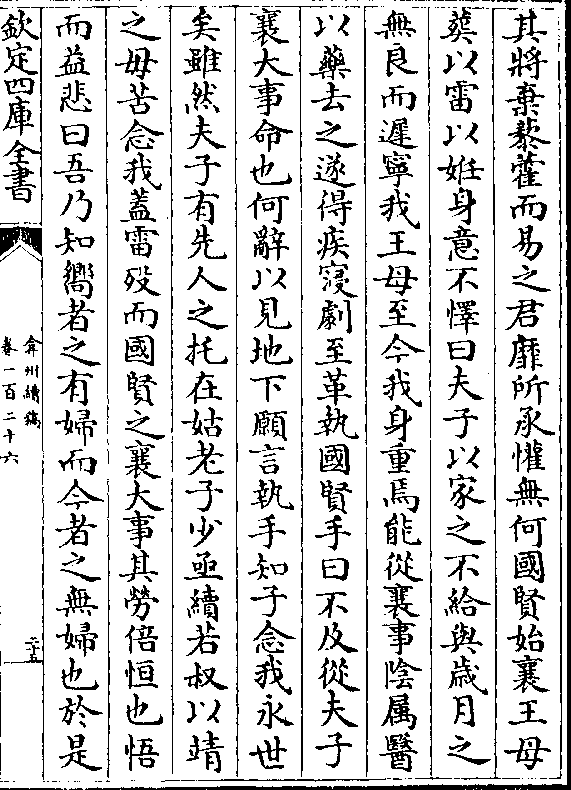 其將棄藜藿而易之君靡所承懽無何國賢始襄王母
𦵏以雷以姙身意不懌曰夫子以家之不給與歲月之
無良而遲寧我王母至今我身重焉能從襄事陰属醫
以藥去之遂得疾寖劇至革執國賢手曰不及從夫子
襄大事命也何辭以見地下願言執手知子念我永世
矣雖然夫子有先人之托在姑老子少亟續若叔以靖
之毋苦念我蓋雷歿而國賢之襄大事其勞倍恒也悟
而益悲曰吾乃知嚮者之有婦而今者之無婦也於是
欽定四庫全書
弇州續稿
卷一百二十六
二十五